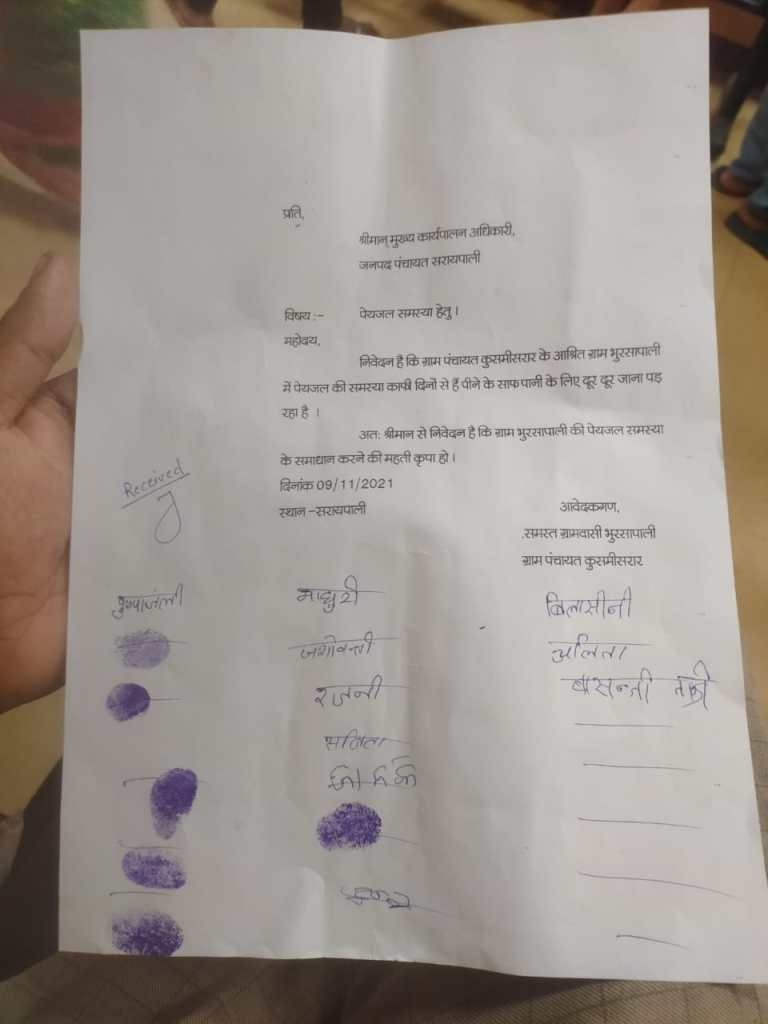 प्रति,
श्रीमान् मुख्य कार्यपालन अधिकारी,
जनपद पंचायत सरायपाली
विषय :- पेयजल समस्या हेतु ।
महोदय,
निवेदन है कि ग्राम पंचायत कुसमीसरार के आश्रित ग्राम भुरसापाली
में पेयजल की समस्या काफी दिनों से हैं पीने के साफ पानी के लिए दूर दूर जाना पड़
रहा है ।
अतः श्रीमान से निवेदन है कि ग्राम भुरसापाली की पेयजल समस्या
के समाधान करने की महती कृपा हो ।
Received
दिनांक 09/11/2021
स्थान –सरायपाली
आवेदकगण,
समस्त ग्रामवासी भुरसापाली
ग्राम पंचायत कुसमीसरार
पुष्पांजली माधुरी बिलासीनी
रजनी बासन्ती